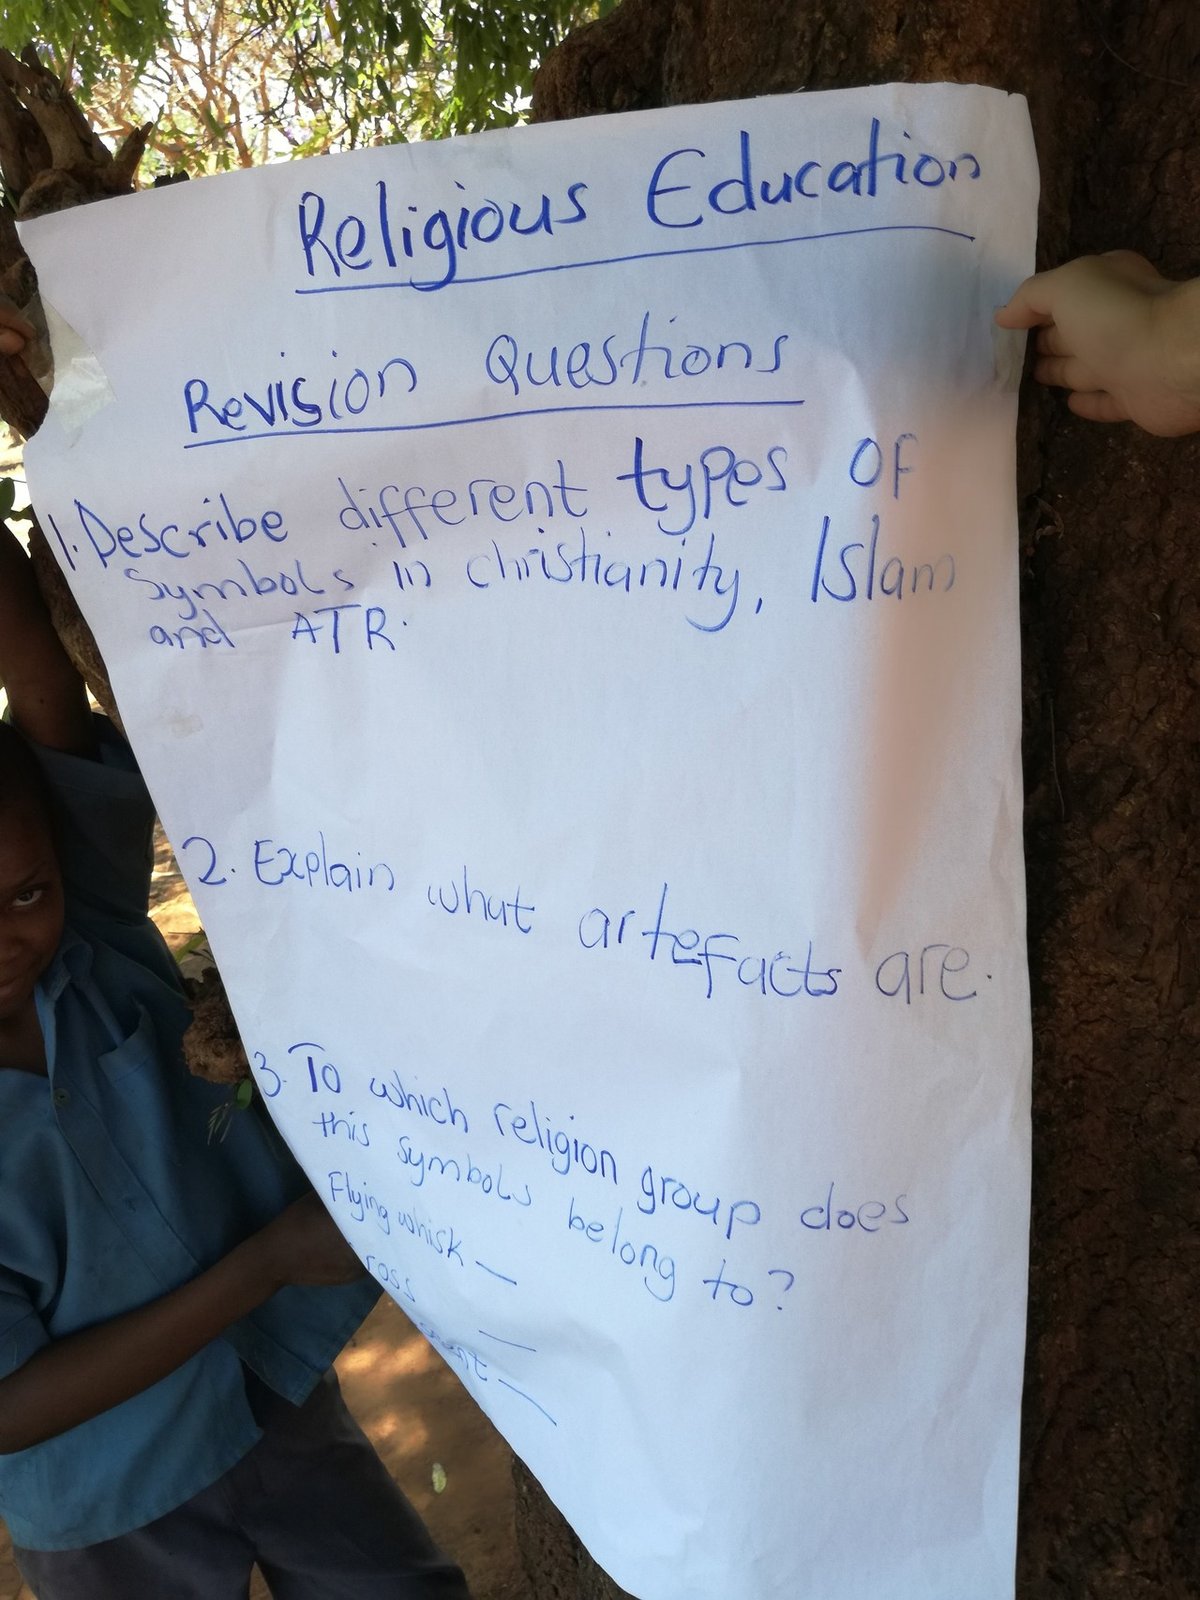 Religious Education
Revision Questions
1. Describe different types of
symbols in christianity, Islam
and ATR.
2. Explain what artefacts are.
3. To which religion group does
this symbols belong to?
Flying whisk —
ross —
—